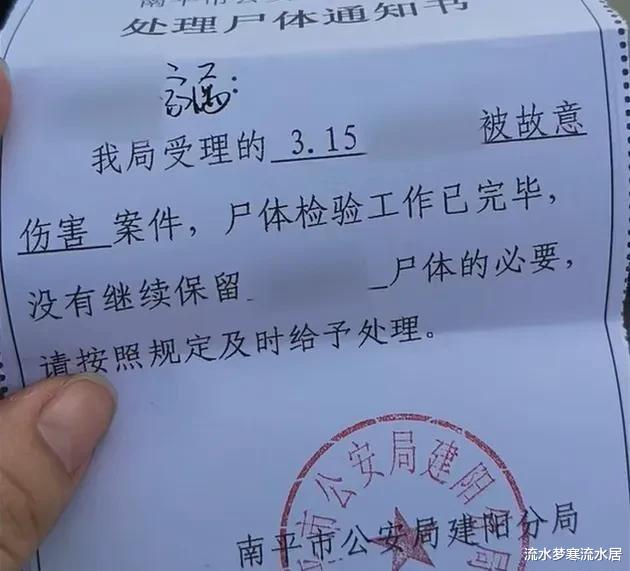 处理尸体通知书
家属:
我局受理的 3.15 被故意
伤害 案件，尸体检验工作已完毕，
没有继续保留 尸体的必要，
请按照规定及时给予处理。
南平市公安局建阳分局
流水梦寒流水居